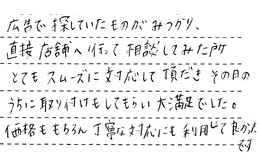 広告で探していたものがみつかり、
直接店舗へ行って相談してみた所
とてもスムーズに対応して頂だき その日の
うちに取り付けもしてもらい大満足でした。
価格ももちろん丁寧な対応にも利用して良かった
です